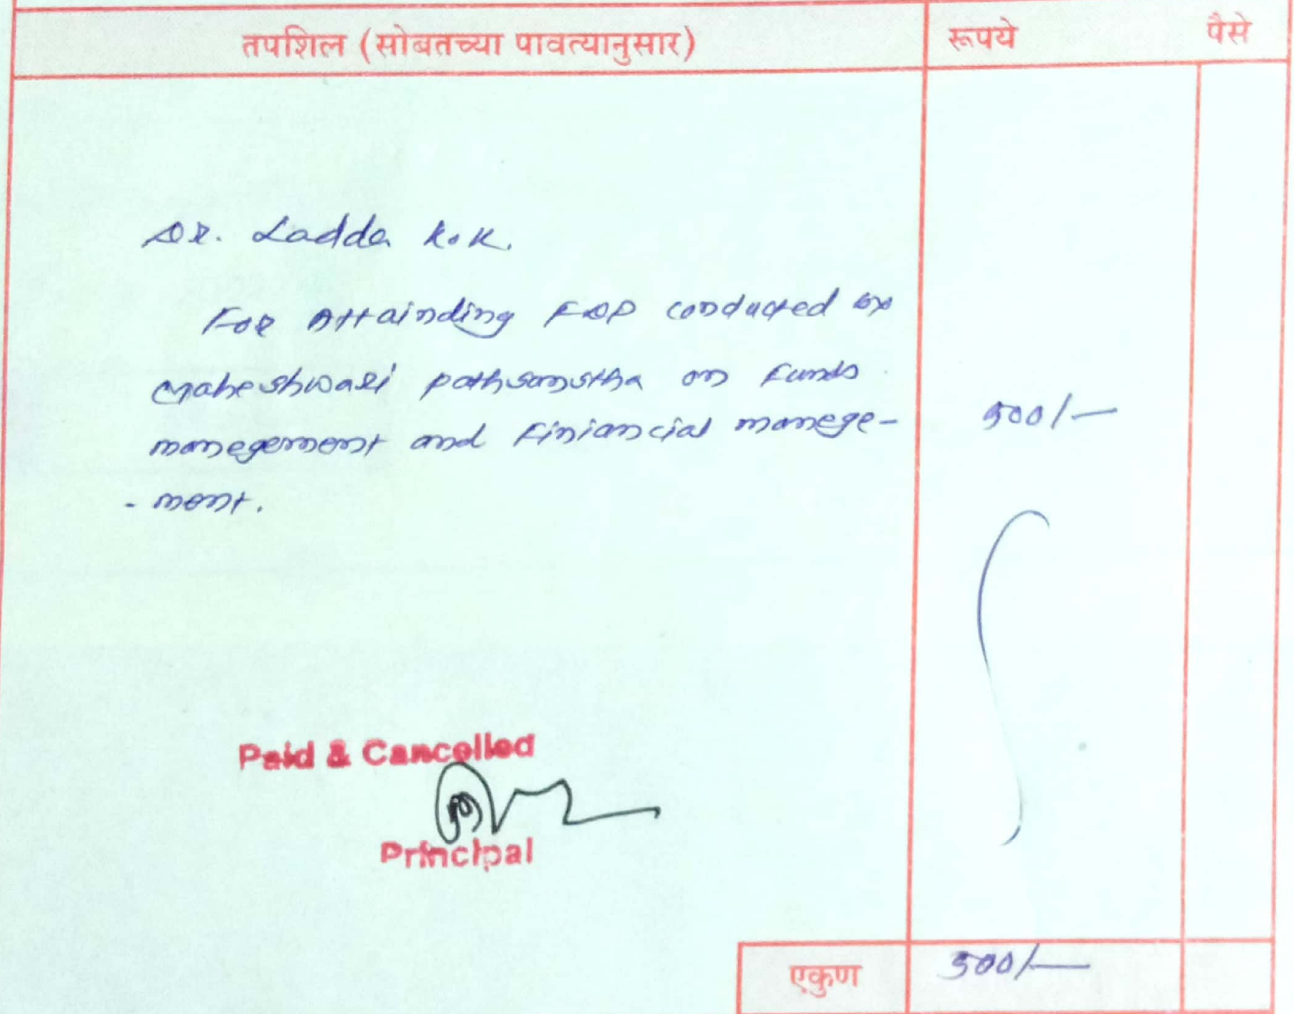 तपशिल (सोबतच्या पावत्यानुसार) रूपये पैसे
DR. Ladda K.K.
For Attainding FDP conducted by
Maheshwari pathsanstha on Funds
manegement and Finiancial manege- 500/-
- ment.
Paid & Cancelled
Principal
एकुण 500/-